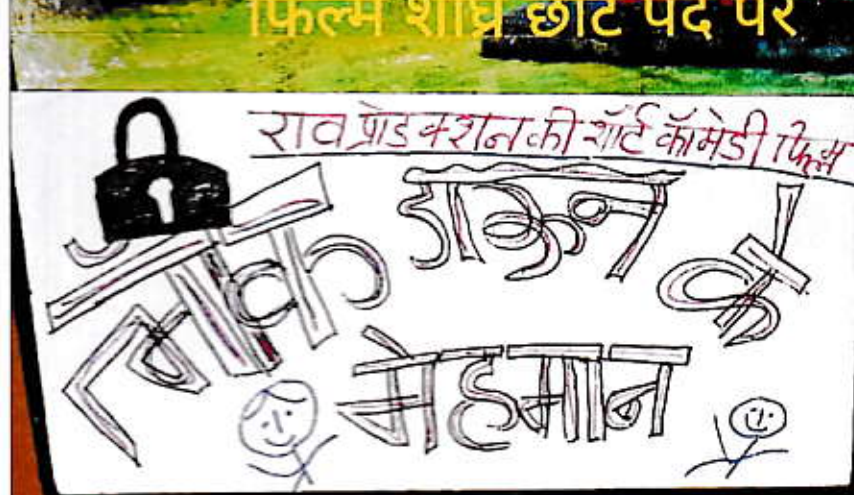 फिल्म शीघ्र छोटे पर्दे पर
राव प्रोडक्शन की शॉर्ट कॉमेडी फिल्म
लॉक डाऊन के
मेहमान